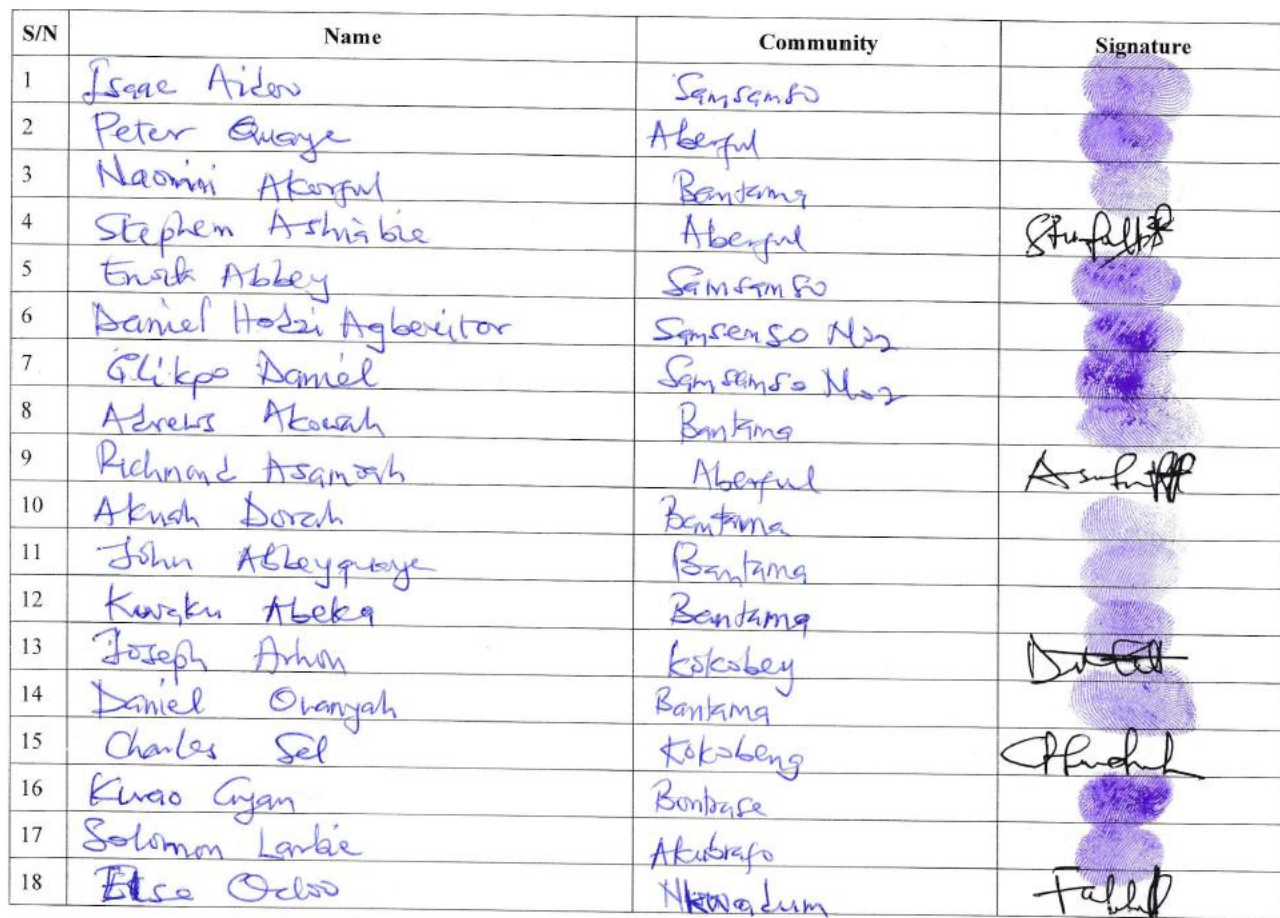 S/N Name Community Signature
1 Isaac Aidoo Samsamso
2 Peter Quaye Aberful
3 Naomi Akorful Bantama
4 Stephen Ashiabie Aberful
5 Enock Abbey Samsamso
6 Daniel Hodzi Agbevitor Samsamso No2
7 Glikpo Daniel Samsamso No2
8 Adrews Akowah Bantama
9 Richmond Asamoah Aberful
10 Akuah Dorah Bantama
11 John Abbeyquaye Bantama
12 Kwaku Abeka Bantama
13 Joseph Arhon Kokobey
14 Daniel Bantama
15 Charles Sel Kokobeng
16 Kwao Gyan Bontrase
17 Solomon Larbie Akubrafo
18 Odoo Nkwadum